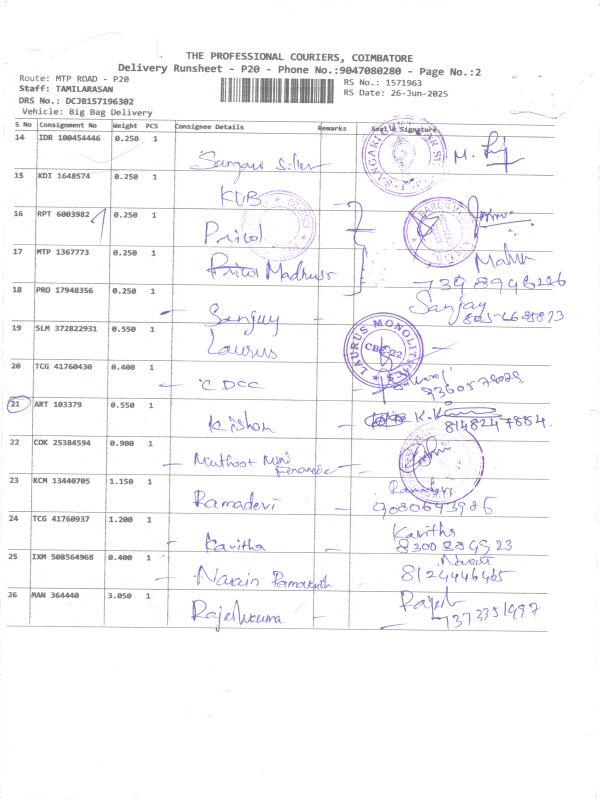 THE PROFESSIONAL COURIERS, COIMBATORE
Delivery Runsheet - P20 - Phone No.:9047080280 - Page No.:2
Route: MTP ROAD - P20
RS No.: 1571963
Staff: TAMILARASAN
RS Date: 26-Jun-2025
DRS No.: DCJB157196302
Vehicle: Big Bag Delivery
S No Consignment No Weight PCS Consignee Details Remarks Seal & Signature
14 IDR 100454446 0.250 1
15 KDI 1648574 0.250 1 KVB
16 RPT 6003982 0.250 1 Pricol
17 MTP 1367773 0.250 1 Pricol Madhusr
18 PRO 17948356 0.250 1 Sanjay Sanjay
19 SLM 372822931 0.550 1 Laurus LAURUS MONOLITH CBE-22
20 TCG 41760430 0.400 1 CDCC
21 ART 103379 0.550 1 Kishor 8148247884
22 COK 25384594 0.900 1 Muthoot Mini Finance
23 KCM 13440705 1.150 1 Ramadevi Ramadevi 9080643986
24 TCG 41760937 1.200 1 Kavitha Kavitha
25 IXM 508564968 0.400 1 Narain 8124446465
26 MAN 364440 3.050 1 Rajeswari Rajesh 7373351497